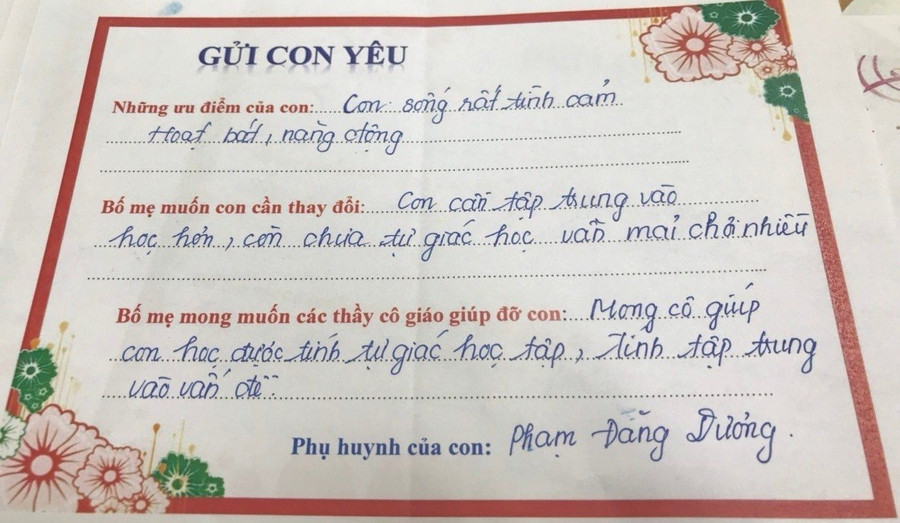 GỬI CON YÊU
Những ưu điểm của con: Con sống rất tình cảm
Hoạt bát, năng động
Bố mẹ muốn con cần thay đổi: Con cần tập trung vào
học hơn, còn chưa tự giác học vẫn mải chơi nhiều
Bố mẹ mong muốn các thầy cô giáo giúp đỡ con: Mong cô giúp
con học được tính tự giác học tập, Tính tập trung
vào vấn đề.
Phụ huynh của con: Phạm Đăng Dương.